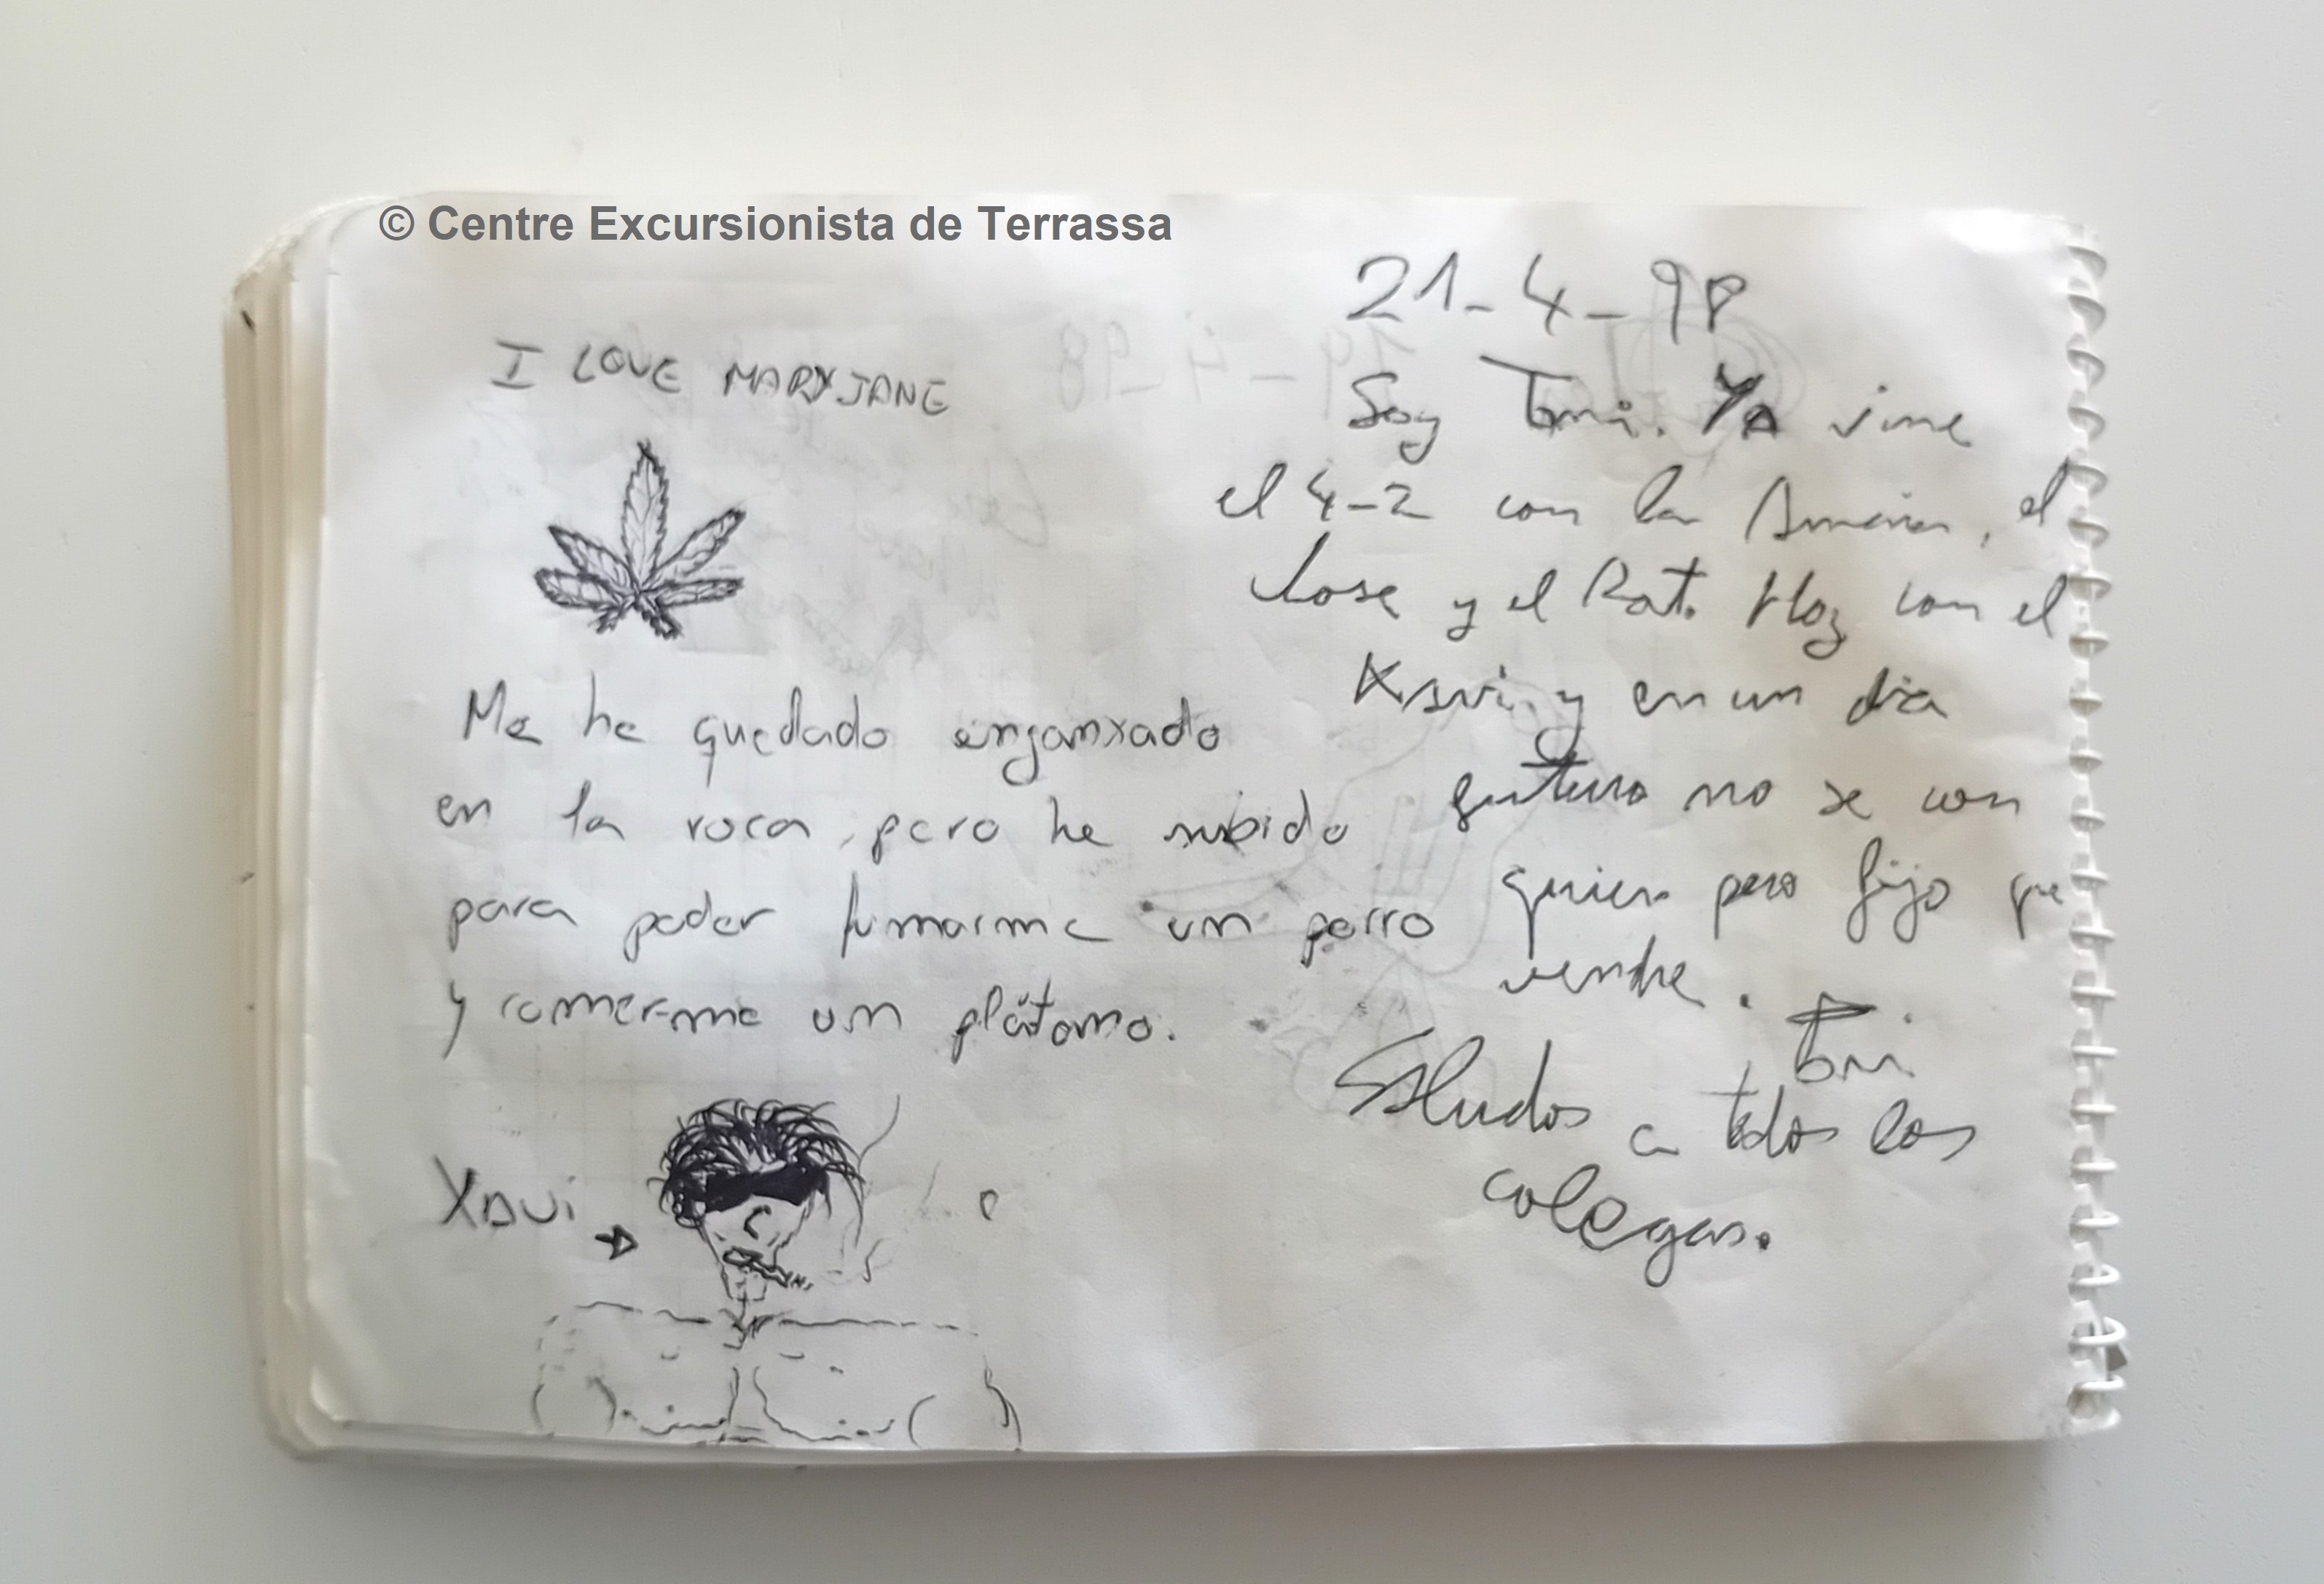 © Centre Excursionista de Terrassa
I LOVE MARYJANE
Me he quedado enganxado
en la roca, pero he subido
para poder fumarme un porro
y comer-me un plátano.
Xavi
21-4-98
Soy Toni. Ya vine
el 4-2 con la, el
Jose y el Rat. Hoy con el
Xavi y en un dia
futuro no se con
quien pero fijo que
vendre.
Toni
Saludos a todos los
colegas.